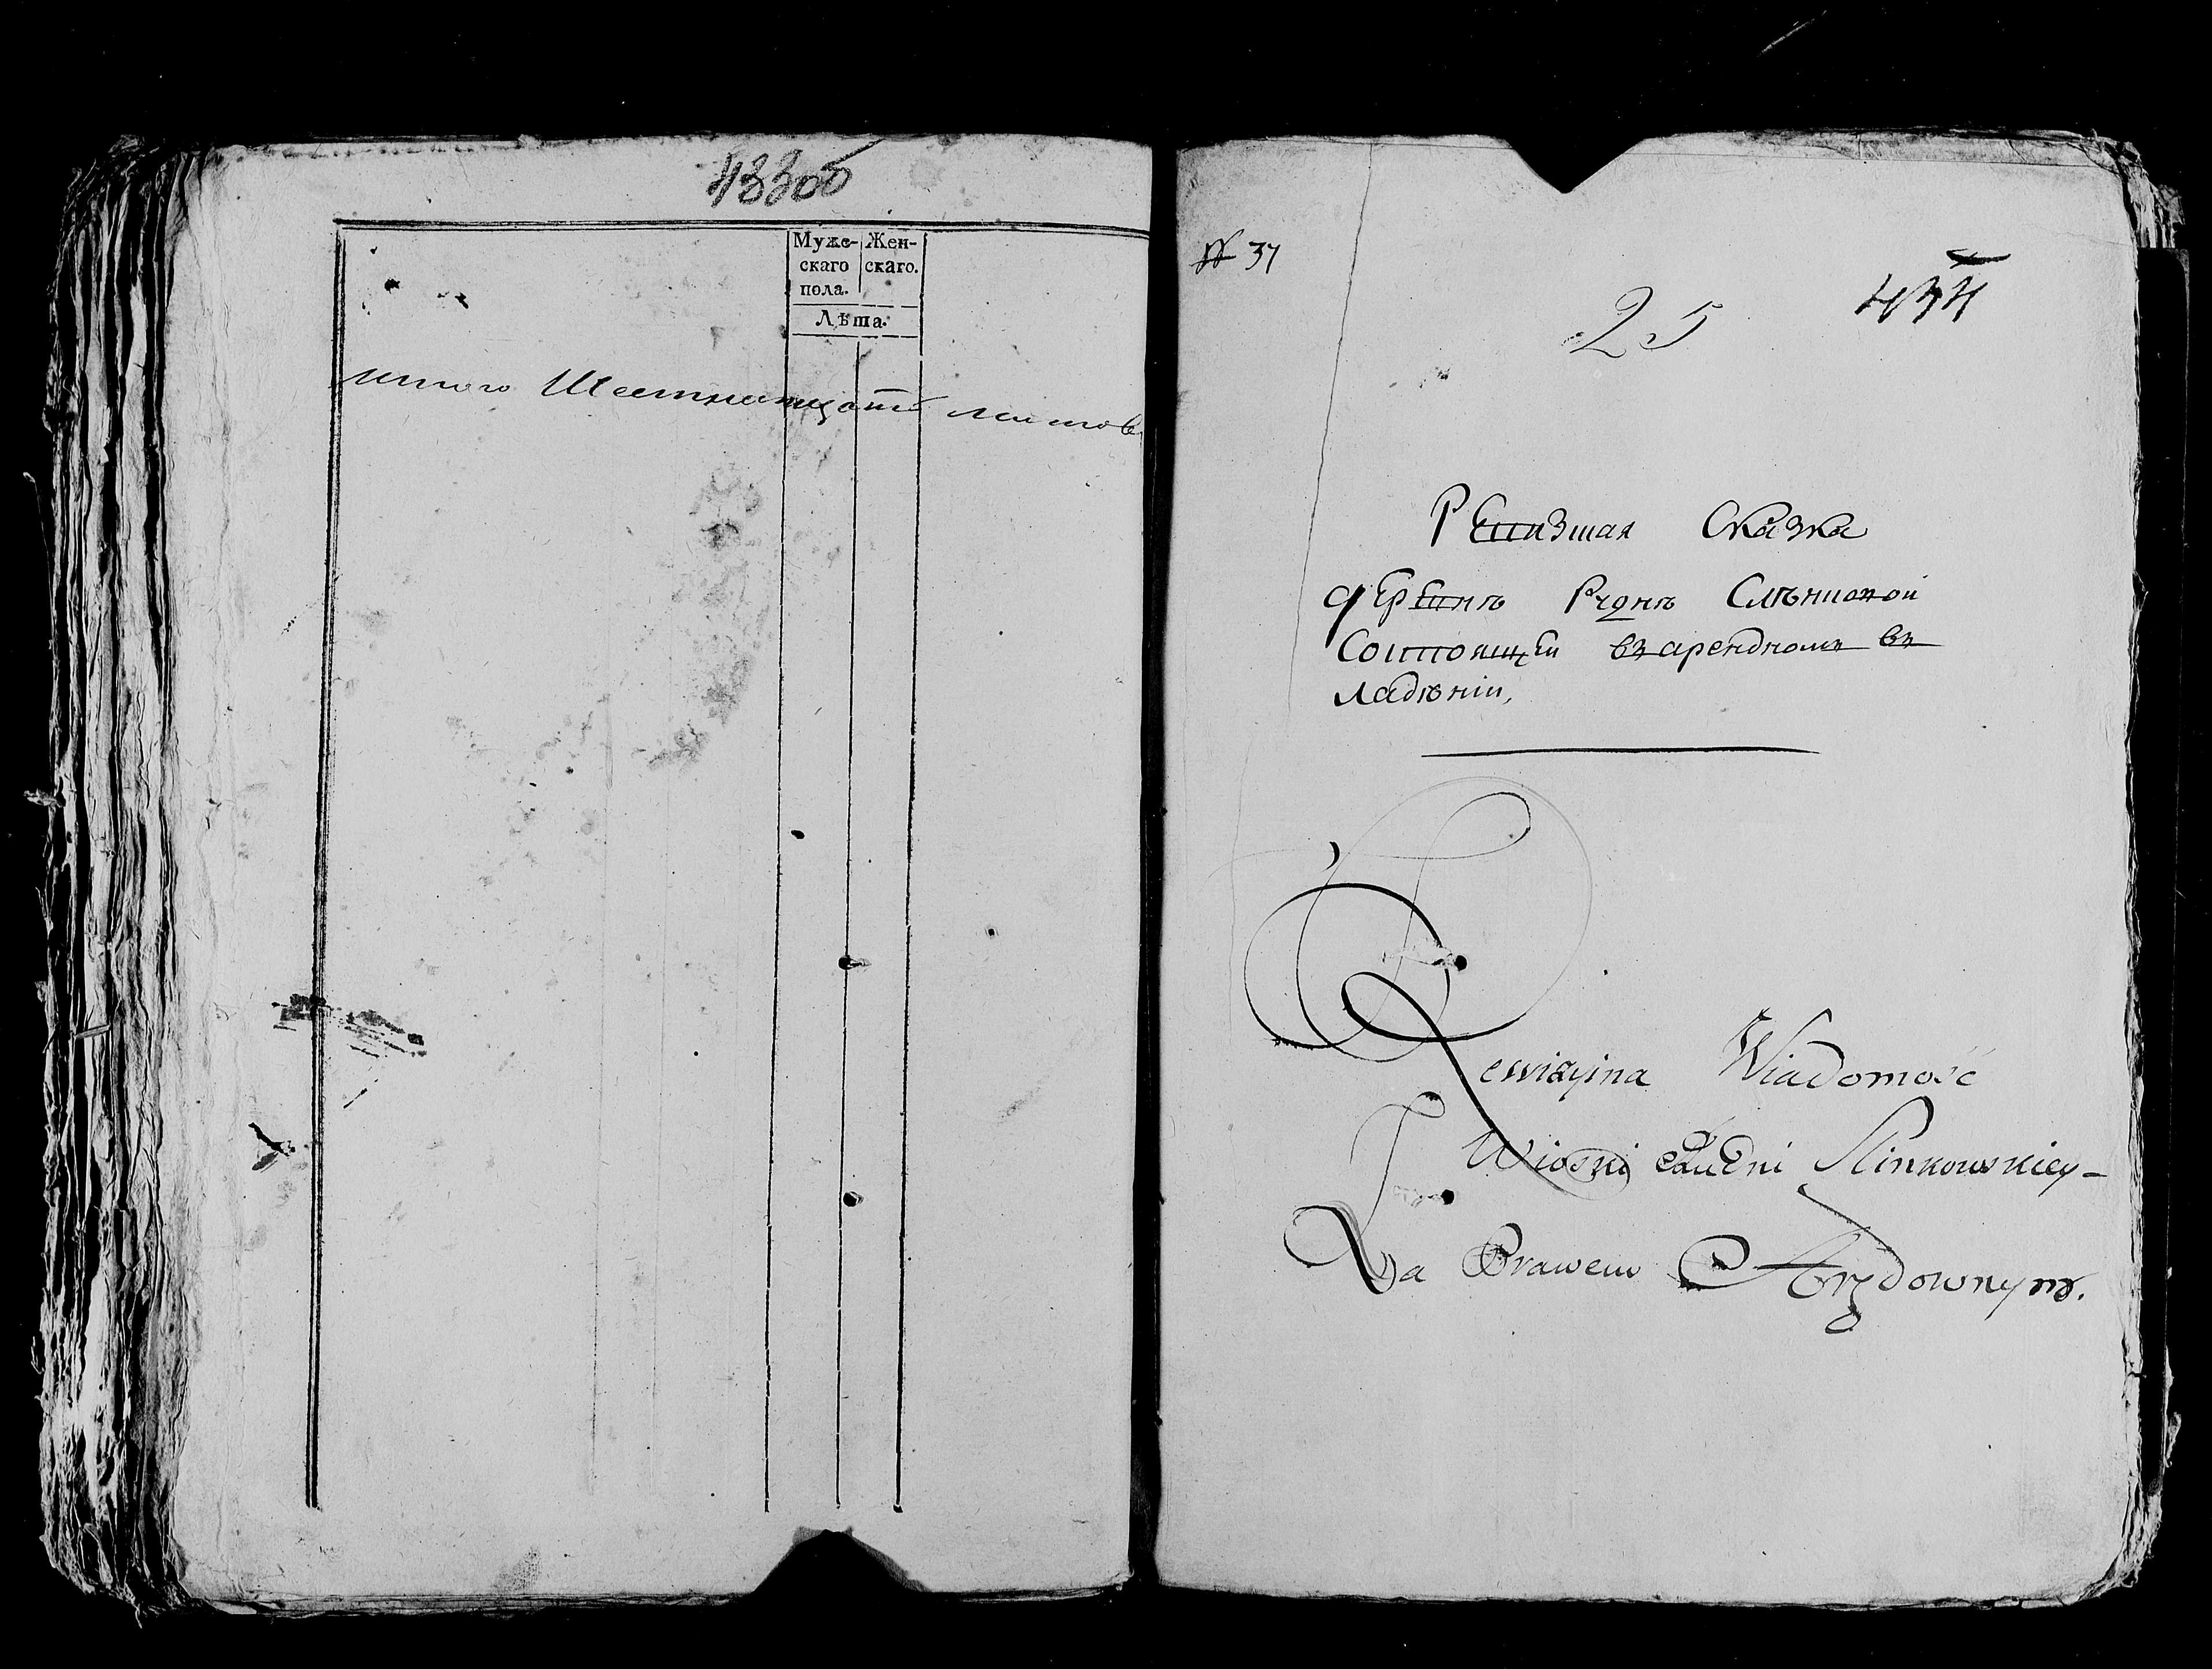 433об
Муже- Жен-
скаго скаго.
пола.
Лѣта.
итого Шестнатцать листов
№ 37
434
25
Ревизшая Сказка
деревнѣ Руднѣ Слѣнковой
Состоящей въ арендномъ въ
ладѣніи,
Rewizyina Wiadomość
Wioski Rudni Slinkowskiey-
Za Prawem Arędownym.